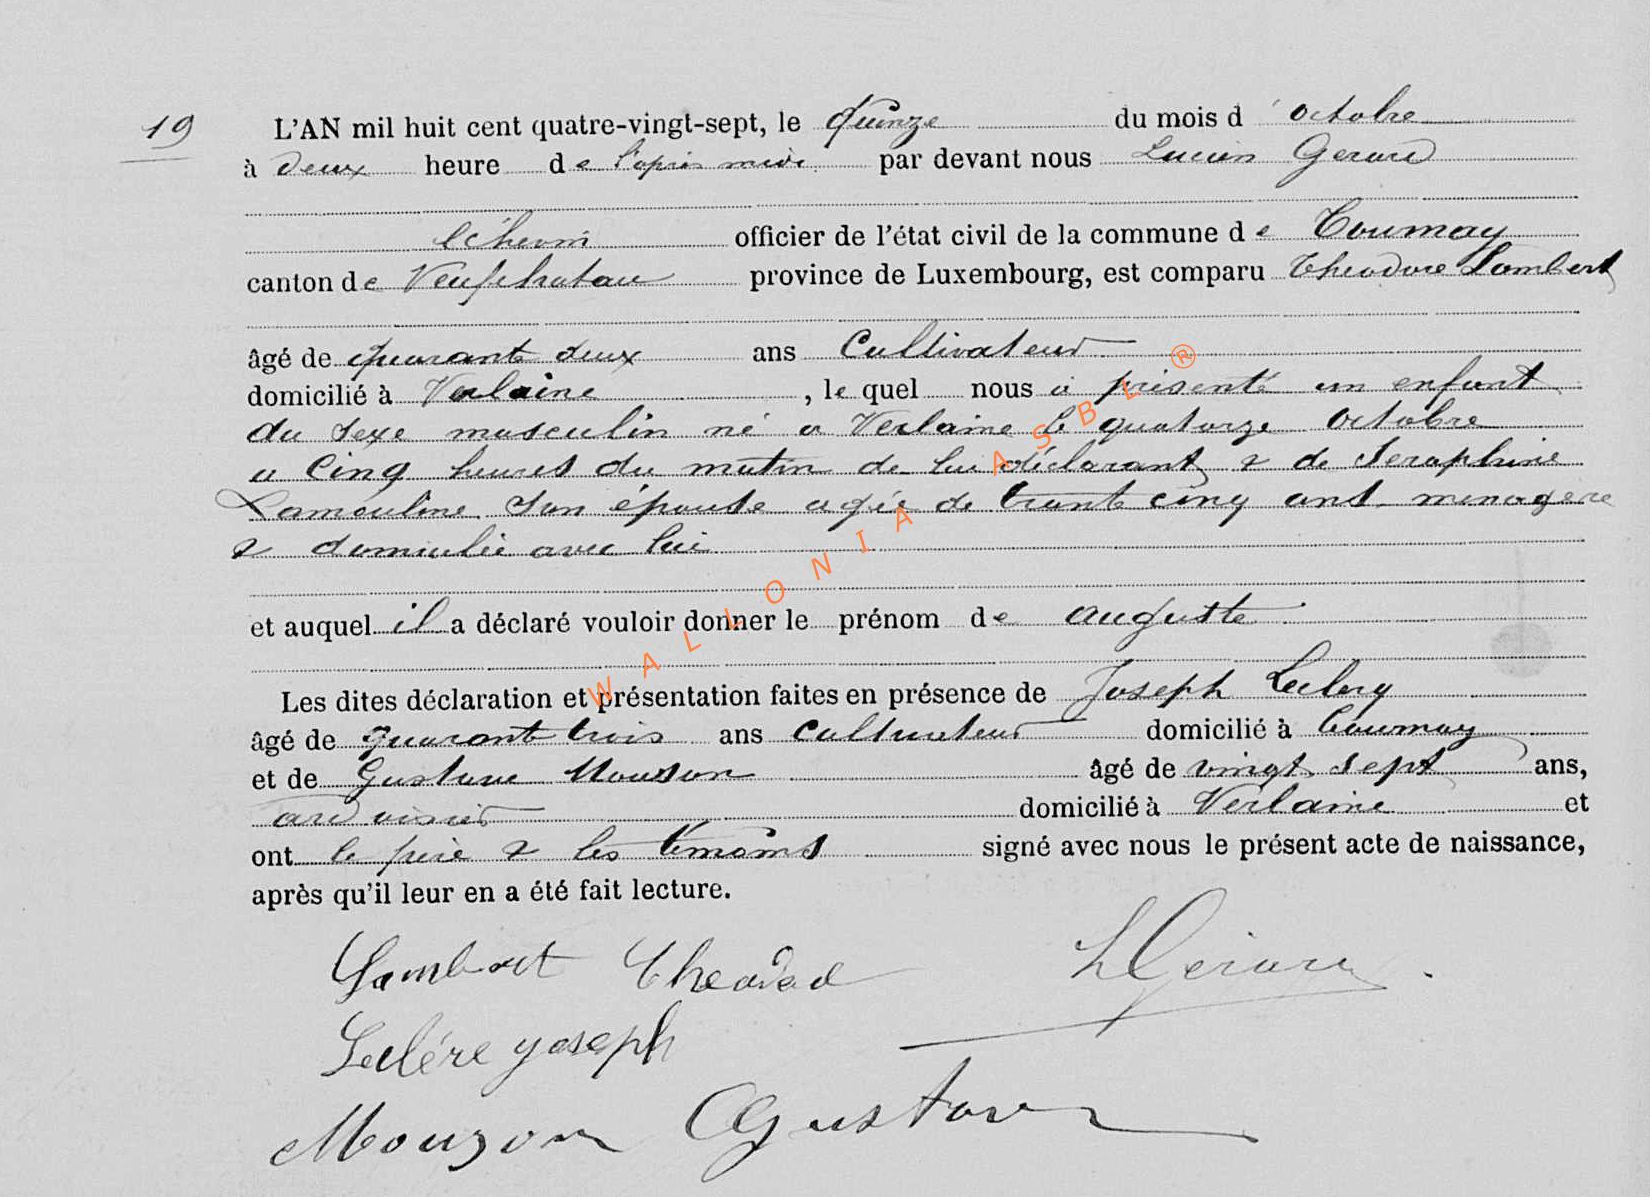 19 L'AN mil huit cent quatre-vingt-sept, le quinze du mois d'octobre
à deux heure de l'après midi par devant nous Lucien Gerard
échevin officier de l'état civil de la commune de Tournay
canton de Neufchateau province de Luxembourg, est comparu Théodore Lambert
âgé de quarante deux ans Cultivateur
domicilié à Verlaine, le quel nous a présenté un enfant
du sexe masculin né a Verlaine le quatorze octobre
a cinq heures du matin de lui déclarant & de Seraphine
Lamouline son épouse agée de trente cinq ans menagere
& domiciliée avec lui
et auquel il a déclaré vouloir donner le prénom de auguste
Les dites déclaration et présentation faites en présence de Joseph Leclerq
âgé de quarante trois ans cultivateur domicilié à Tournay
et de Gustave Mouson âgé de vingt sept ans,
ardoisier domicilié à Verlaine et
ont le père & les témoins signé avec nous le présent acte de naissance,
après qu'il leur en a été fait lecture.
Lambert Theodod LGérard
Leclére joseph
Mouzon Gustave
WALLONIA ASBL ®